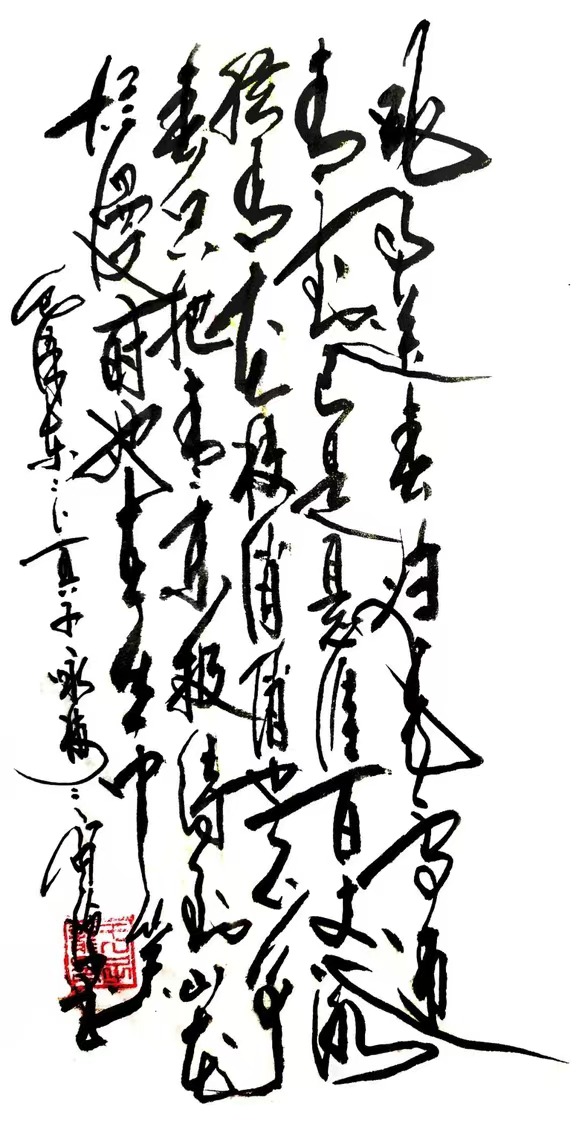 风雨送春归飞雪迎
春到已是悬崖百丈冰
犹有花枝俏俏也不争
春只把春来报待到山花
烂漫时她在丛中笑
毛泽东卜算子咏梅